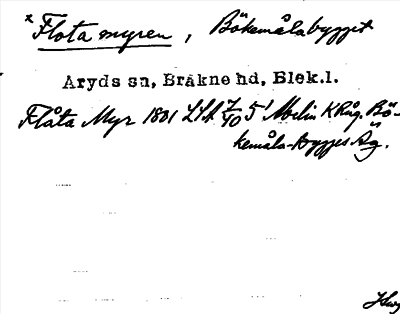 *Flota myren, Bökemålabygget
Aryds sn, Bräkne hd, Blek.l.
Flåta Myr 1801 LSA 7/40 5' Modin K Råg. Bö-
kemåla-bygges Äg.